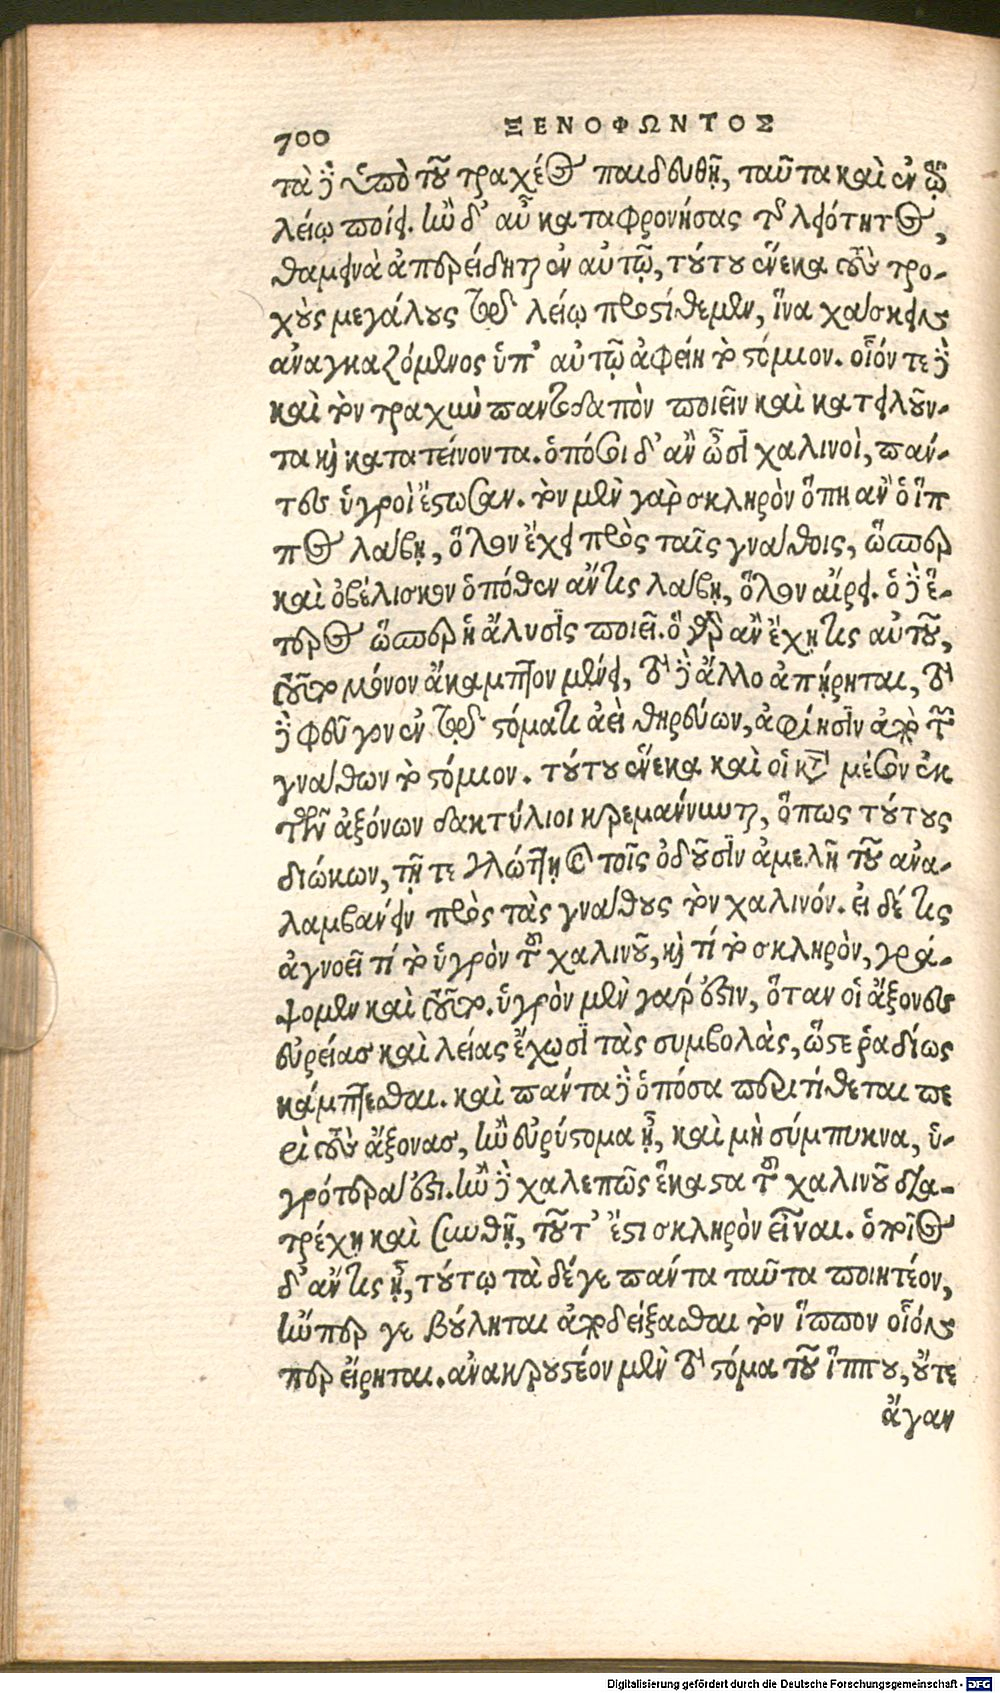 700
ΞΕΝΟΦΩΝΤΟΣ
τα δὲ ὑπὸ τοῦ τραχέος παιδευθῇ, ταῦτα καὶ ἐν τῷ
λείῳ ποιεῖ. ἢν δ' αὖ καταφρονήσας τῆς λειότητος,
θαμεινὰ ἀπερείδηται ἐν αὐτῷ, τούτου ἕνεκα τοὺς τρο-
χοὺς μεγάλους τῷ λείῳ προστίθεμεν, ἵνα χάσκειν
ἀναγκαζόμενος ὑπ' αὐτῷ ἀφείη τὸ στόμιον. οἷόν τε δὲ
καὶ τὸν τραχὺν παντοδαπὸν ποιεῖν καὶ κατειλοῦν-
τα καὶ κατατείνοντα. ὁπόσοι δ' ἂν ὦσι χαλινοὶ, πάν-
τες ὑγροὶ ἔστωσαν. τὸν μὲν γὰρ σκληρὸν ὅπη ἂν ὁ ἵπ
πος λάβῃ, ὅλον ἔχει πρὸς ταῖς γνάθοις, ὥσπερ
καὶ ὀβέλισκον ὁπόθεν ἄν τις λάβῃ, ὅλον αἴρει. ὁ δὲ ἕ-
τερος ὥσπερ ἡ ἄλυσις ποιεῖ. ὃ γὰρ ἂν ἔχῃ τις αὐτοῦ,
τοῦτο μόνον ἄκαμπτον μένει, τὸ δὲ ἄλλο ἀπήρτηται, τὸ
δὲ φεῦγον ἐν τῷ στόματι ἀεὶ θηρεύων, ἀφίησιν ἀπὸ τῶν
γνάθων τὸ στόμιον. τούτου ἕνεκα καὶ οἱ κατὰ μέσον ἐκ
τῶν ἀξόνων δακτύλιοι κρεμάννυνται, ὅπως τούτους
διώκων, τῇ τε γλώττῃ καὶ τοῖς ὀδοῦσιν ἀμελῇ τοῦ ἀνα-
λαμβάνειν πρὸς τὰς γνάθους τὸν χαλινόν. εἰ δέ τις
ἀγνοεῖ τί τὸ ὑγρὸν τοῦ χαλινοῦ, καὶ τί τὸ σκληρὸν, γρά-
ψομεν καὶ τοῦτο. ὑγρὸν μὲν γάρ ἐστιν, ὅταν οἱ ἄξονες
εὐρείας καὶ λείας ἔχωσι τὰς συμβολὰς, ὥστε ῥᾳδίως
κάμπτεσθαι. καὶ πάντα δὲ ὁπόσα περιτίθεται πε
ρὶ τοὺς ἄξονας, ἢν εὐρύστομα ᾖ, καὶ μὴ σύμπυκνα, ὑ-
γρότερά ἐστι. ἢν δὲ χαλεπῶς ἕκαστα τοῦ χαλινοῦ δια-
τρέχῃ καὶ συνθῇ, τοῦτ' ἔστι σκληρὸν εἶναι. ὁποῖος
δ' ἄν τις ᾖ, τούτῳ τὰ δέ γε πάντα ταῦτα ποιητέον,
ἤνπερ γε βούληται ἀποδείξασθαι τὸν ἵππον οἷόν
περ εἴρηται. ἀνακρουστέον μὲν τὸ στόμα τοῦ ἵππου, οὔτε
ἄγαν